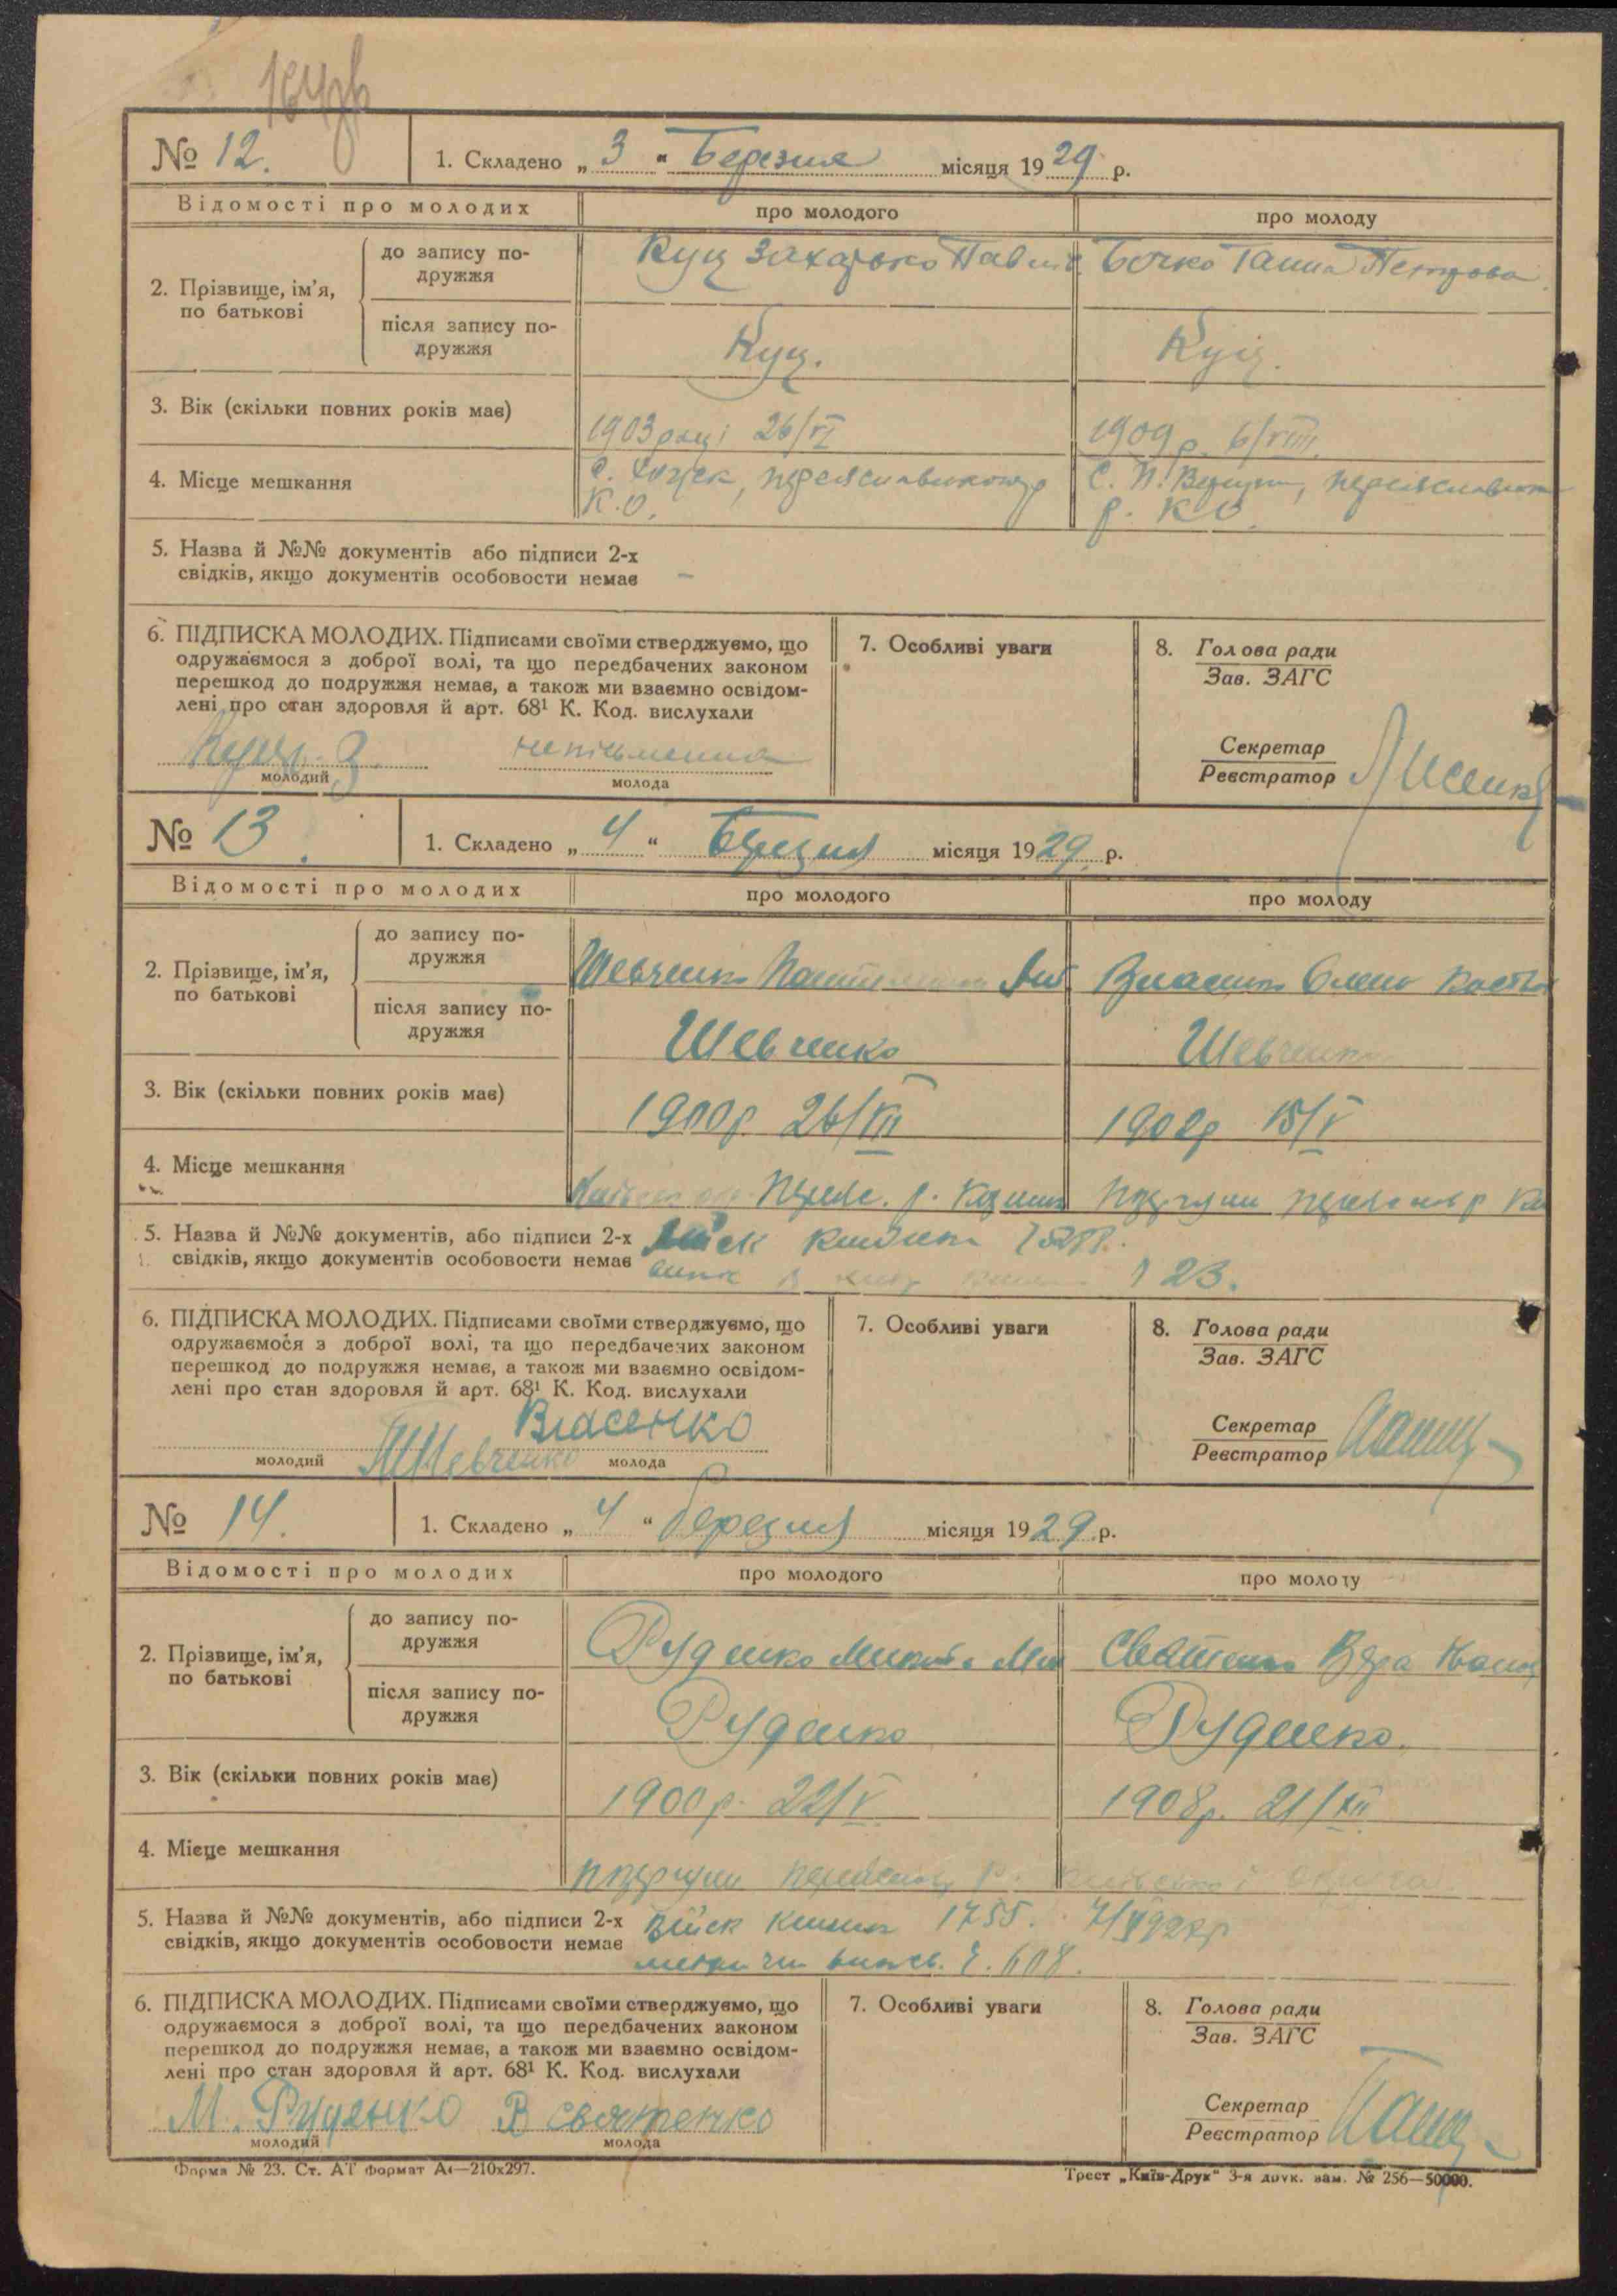 164зв
№ 12. 1. Складено „ 3 " Березня місяця 1929 р.
Відомості про молодих про молодого про молоду
2. Прізвище, ім'я, по батькові
до запису по-
дружжя
Куц Захарько Бочко Ганна Петрова
після запису по-
дружжя
Куц. Куц.
3. Вік (скільки повних років має) 1903 році 26/VI 1909 р. 6/VIII.
4. Місце мешкання с. р С. П.
К.О. р. К О.
5. Назва й №№ документів або підписи 2-х
свідків, якщо документів особовости немає –
6. ПІДПИСКА МОЛОДИХ. Підписами своїми стверджуємо, що
одружаємося з доброї волі, та що передбачених законом
перешкод до подружжя немає, а також ми взаємно освідом-
лені про стан здоровля й арт. 68¹ К. Код. вислухали
Куц. З. неписьменна
молодий молода
7. Особливі уваги
8. Голова ради
Зав. ЗАГС
Секретар
Реєстратор
№ 13. 1. Складено „ 4 " Березня місяця 1929 р.
Відомості про молодих про молодого про молоду
2. Прізвище, ім'я, по батькові
до запису по-
дружжя
Шевченко Олена
після запису по-
дружжя
Шевченко Шевченко
3. Вік (скільки повних років має) 1900р. 26/XII 1902р 15/V
4. Місце мешкання
5. Назва й №№ документів, або підписи 2-х
свідків, якщо документів особовости немає
123.
6. ПІДПИСКА МОЛОДИХ. Підписами своїми стверджуємо, що
одружаємося з доброї волі, та що передбачених законом
перешкод до подружжя немає, а також ми взаємно освідом-
лені про стан здоровля й арт. 68¹ К. Код. вислухали
Власенко
молодий Шевченко молода
7. Особливі уваги
8. Голова ради
Зав. ЗАГС
Секретар
Реєстратор
№ 14. 1. Складено „ 4 " березня місяця 1929 р.
Відомості про молодих про молодого про молоду
2. Прізвище, ім'я, по батькові
до запису по-
дружжя
Руденко Микола Святенко Віра Іванов
після запису по-
дружжя
Руденко Руденко.
3. Вік (скільки повних років має) 1900р. 22/V 1908р. 21/XII
4. Місце мешкання
5. Назва й №№ документів, або підписи 2-х
свідків, якщо документів особовости немає
Війск 1755.
608.
6. ПІДПИСКА МОЛОДИХ. Підписами своїми стверджуємо, що
одружаємося з доброї волі, та що передбачених законом
перешкод до подружжя немає, а також ми взаємно освідом-
лені про стан здоровля й арт. 68¹ К. Код. вислухали
М. Руденко В Святенко
молодий молода
7. Особливі уваги
8. Голова ради
Зав. ЗАГС
Секретар
Реєстратор
Форма № 23. Ст. АТ формат А4—210х297. Трест „Київ-Друк" 3-я друк. зам. № 256—50000.